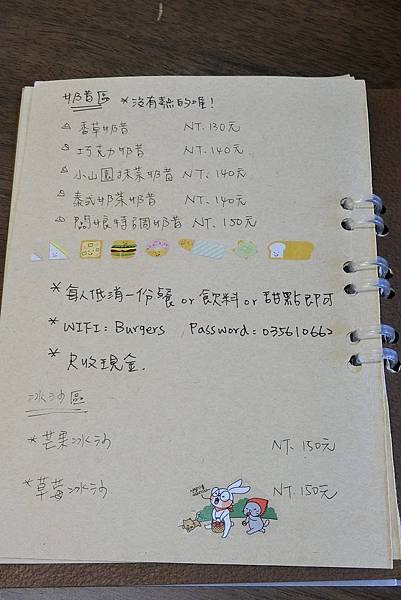 奶昔區 *沒有熱的喔!
△ 香草奶昔 NT. 130元
△ 巧克力奶昔 NT. 140元
△ 小山園抹茶奶昔 NT. 140元
△ 泰式奶茶奶昔 NT. 140元
△ 闆娘特調奶昔 NT. 150元
*每人低消一份餐 or 飲料 or 甜點即可
*WIFI: Burgers Password: 035610662
*只收現金.
冰沙區
*芒果冰沙 NT. 150元
*草莓冰沙 NT. 150元